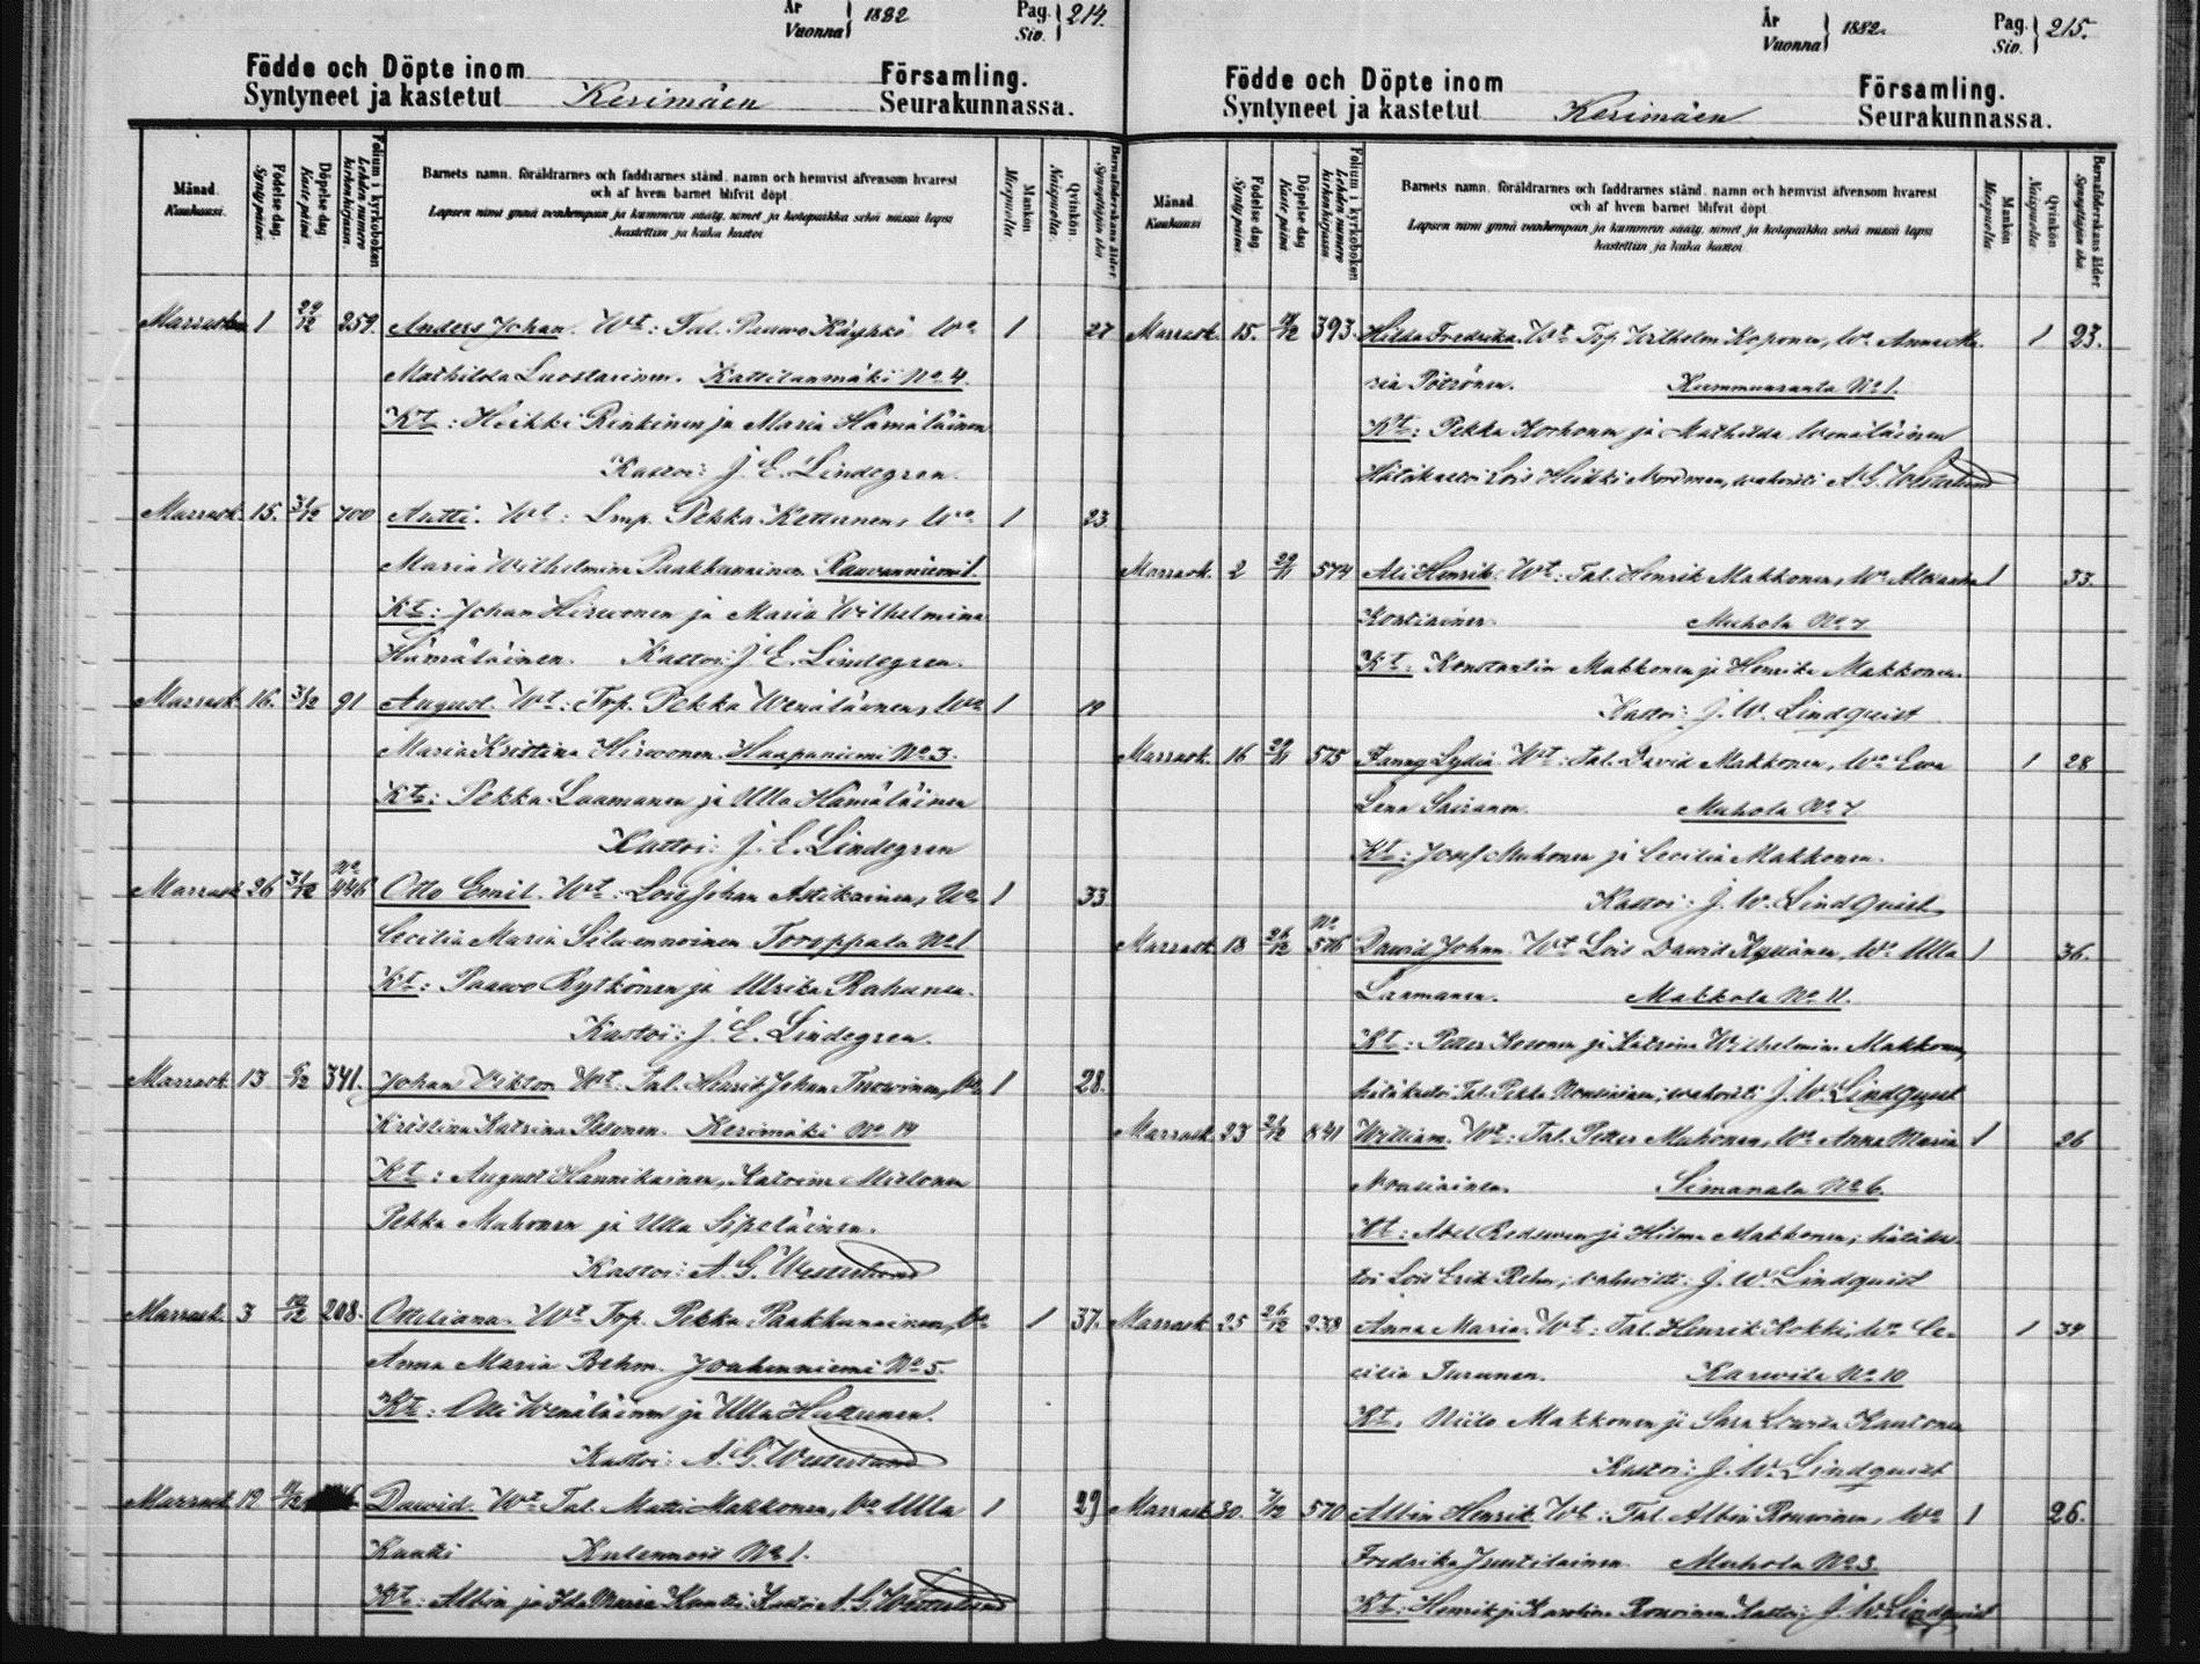 År
Vuonna } 1882
Pag.
Siv. } 214.
Födde och Döpte inom
Syntyneet ja kastetut Kerimäen
Församling.
Seurakunnassa.
Månad.
Kuukausi.
Födelse dag.
Synty päivä.
Döpelse dag
Kaste päivä
Folium i kyrkoboken
Lehden numero kirkonkirjassa.
Barnets namn, föräldrarnes och faddrarnes stånd, namn och hemvist äfvensom hvarest
och af hvem barnet blifvit döpt
Lapsen nimi ynnä vanhempain ja kummein sääty, nimet ja kotopaikka sekä missä lapsi
kastettiin ja kuka kastoi
Mankön
Miespuolia
Qvinkön
Naispuolia.
Barnaföderskans ålder
Synnyttäjän ikä
Marrask. 1 29/12 259. Anders Johan. Wt: Tal. Paawo Käyhkö Wo 1 27
Mathilda Luostarinen. Kattilanmäki No 4.
Kt: Heikki Rinkinen ja Maria Hämäläinen
Kastoi: J. E. Lindegren.
Marrask. 15. 31/12 700 Antti. Wt: Lmp. Pekka Kettunen, Wo 1 23
Maria Wilhelmina Paakkunainen. Rauvanniemi 1.
Kt: Johan Hirvonen ja Maria Wilhelmina
Hämäläinen. Kastoi: J. E. Lindegren.
Marrask. 16. 31/12 91 August. Wt: Trp. Pekka Wenäläinen, Wo 1 19
Maria Kristina Hirvonen. Haapaniemi No 3.
Kt: Pekka Laamanen ja Ulla Hämäläinen
Kastoi: J. E. Lindegren
Marrask 26 31/12 No 446 Otto Emil. Wt: Lois Johan Astikainen, Wo 1 33
Cecilia Maria Silvennoinen Toroppala No 1
Kt: Paawo Rytkönen ja Ulrika Rahunen.
Kastoi: J. E. Lindegren.
Marrask. 13 /12 341. Johan Viktor Wt: Tal. Henrik Johan Turowinen, Wo 1 28.
Kristina Katrina Pesonen. Kerimäki No 14
Kt: August Hannikainen, Katrina Mielonen
Pekka Muhonen ja Ulla Sipeläinen.
Kastoi: A. G. Westerlund
Marrask. 3 /12 208. Otteliana. Wt Trp. Pekka Paakkunainen, Wo 1 37.
Anna Maria Behm. Jouhenniemi No 5.
Kt: Olli Wenäläinen ja Ulla Hattunen.
Kastoi: A. G. Westerlund
Marrask 19 /12 Dawid. Wt Tal. Matti Makkonen, Wo Ulla 1 29
Kautti Kulennois No 1.
Kt: Albin ja Ida Maria Kautti. Kastoi A. G. Westerlund
År
Vuonna } 1882.
Pag.
Siv. } 215.
Födde och Döpte inom
Syntyneet ja kastetut Kerimäen
Församling.
Seurakunnassa.
Månad
Kuukausi
Födelse dag.
Synty päivä.
Döpelse dag
Kaste päivä
Folium i kyrkoboken
Lehden numero kirkonkirjassa.
Barnets namn, föräldrarnes och faddrarnes stånd, namn och hemvist äfvensom hvarest
och af hvem barnet blifvit döpt
Lapsen nimi ynnä vanhempain ja kummein sääty, nimet ja kotopaikka sekä missä lapsi
kastettiin ja kuka kastoi
Mankön
Miespuolia
Qvinkön
Naispuolia
Barnaföderskans ålder
Synnyttäjän ikä
Marrask. 15. /12 393. Hilda Fredrika. Wt Trp. Wilhelm Koponen, Wo Anna Ma- 1 23.
ria Pötrönen. Kummunranta No 1.
Kt: Pekka Korhonen ja Mathilda Wenäläinen
Hätäkastoi Lois Heikki Nordman, wahvisti A. G. Westerlund
Marrask. 2 29/11 574 Ali Henrik. Wt: Tal. Henrik Makkonen, Wo 1 33.
Kontiainen. Muhola No 7
Kt: Konstantin Makkonen ja Henrika Makkonen.
Kastoi: J. W. Lindquist
Marrask. 16 29/11 575 Fanny Lydia. Wt: Tal. David Makkonen, Wo Ewa 1 28
Lena Sairanen. Muhola No 7
Kt: Josef Muhonen ja Cecilia Makkonen.
Kastoi: J. W. Lindquist
Marrask 18 26/12 No 576 Dawid Johan. Wt Lois Dawid Kyllönen, Wo Ulla 1 36.
Laamanen. Makkola No 11.
Kt: Petter Kosonen ja Katrina Wilhelmina Makkonen,
hätäkastoi Tal. Pekka Nousiainen; wahvisti J. W. Lindquist
Marrask. 23 /12 841 William. Wt: Tal. Petter Muhonen, Wo Anna Maria 1 26
Nousiainen. Simanala No 6.
Kt: Abel Redsven ja Hilma Makkonen; hätäkas-
toi Lois Erik Rehn; wahvisti: J. W. Lindquist
Marrask 25 26/12 238 Anna Maria. Wt: Tal. Henrik Kokki, Wo Ce- 1 34
cilia Turunen. Karwila No 10
Kt. Niilo Makkonen ja Sara Lovisa Kautonen
Kastoi: J. W. Lindquist
Marrask 30. /12 570 Albin Henrik Wt: Tal. Albin Rouvinen, Wo 1 26.
Fredrika Juutilainen Muhola No 3.
Kt: Henrik ja Karolina Rouvinen. Kastoi: J. W. Lindquist